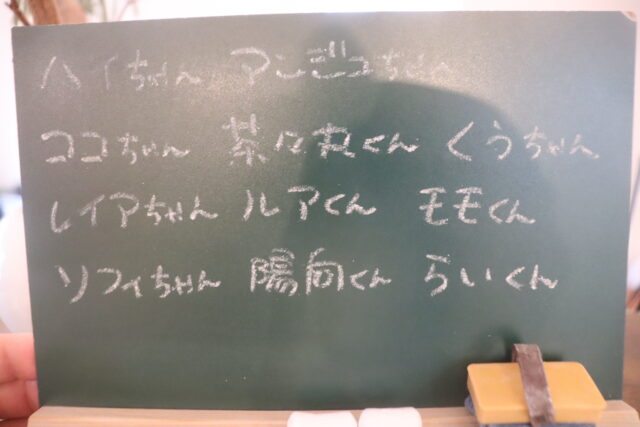 ハイちゃん アンジュちゃん
ココちゃん 茶々丸くん くうちゃん
レイアちゃん ルアくん モモくん
ソフィちゃん 陽向くん らいくん